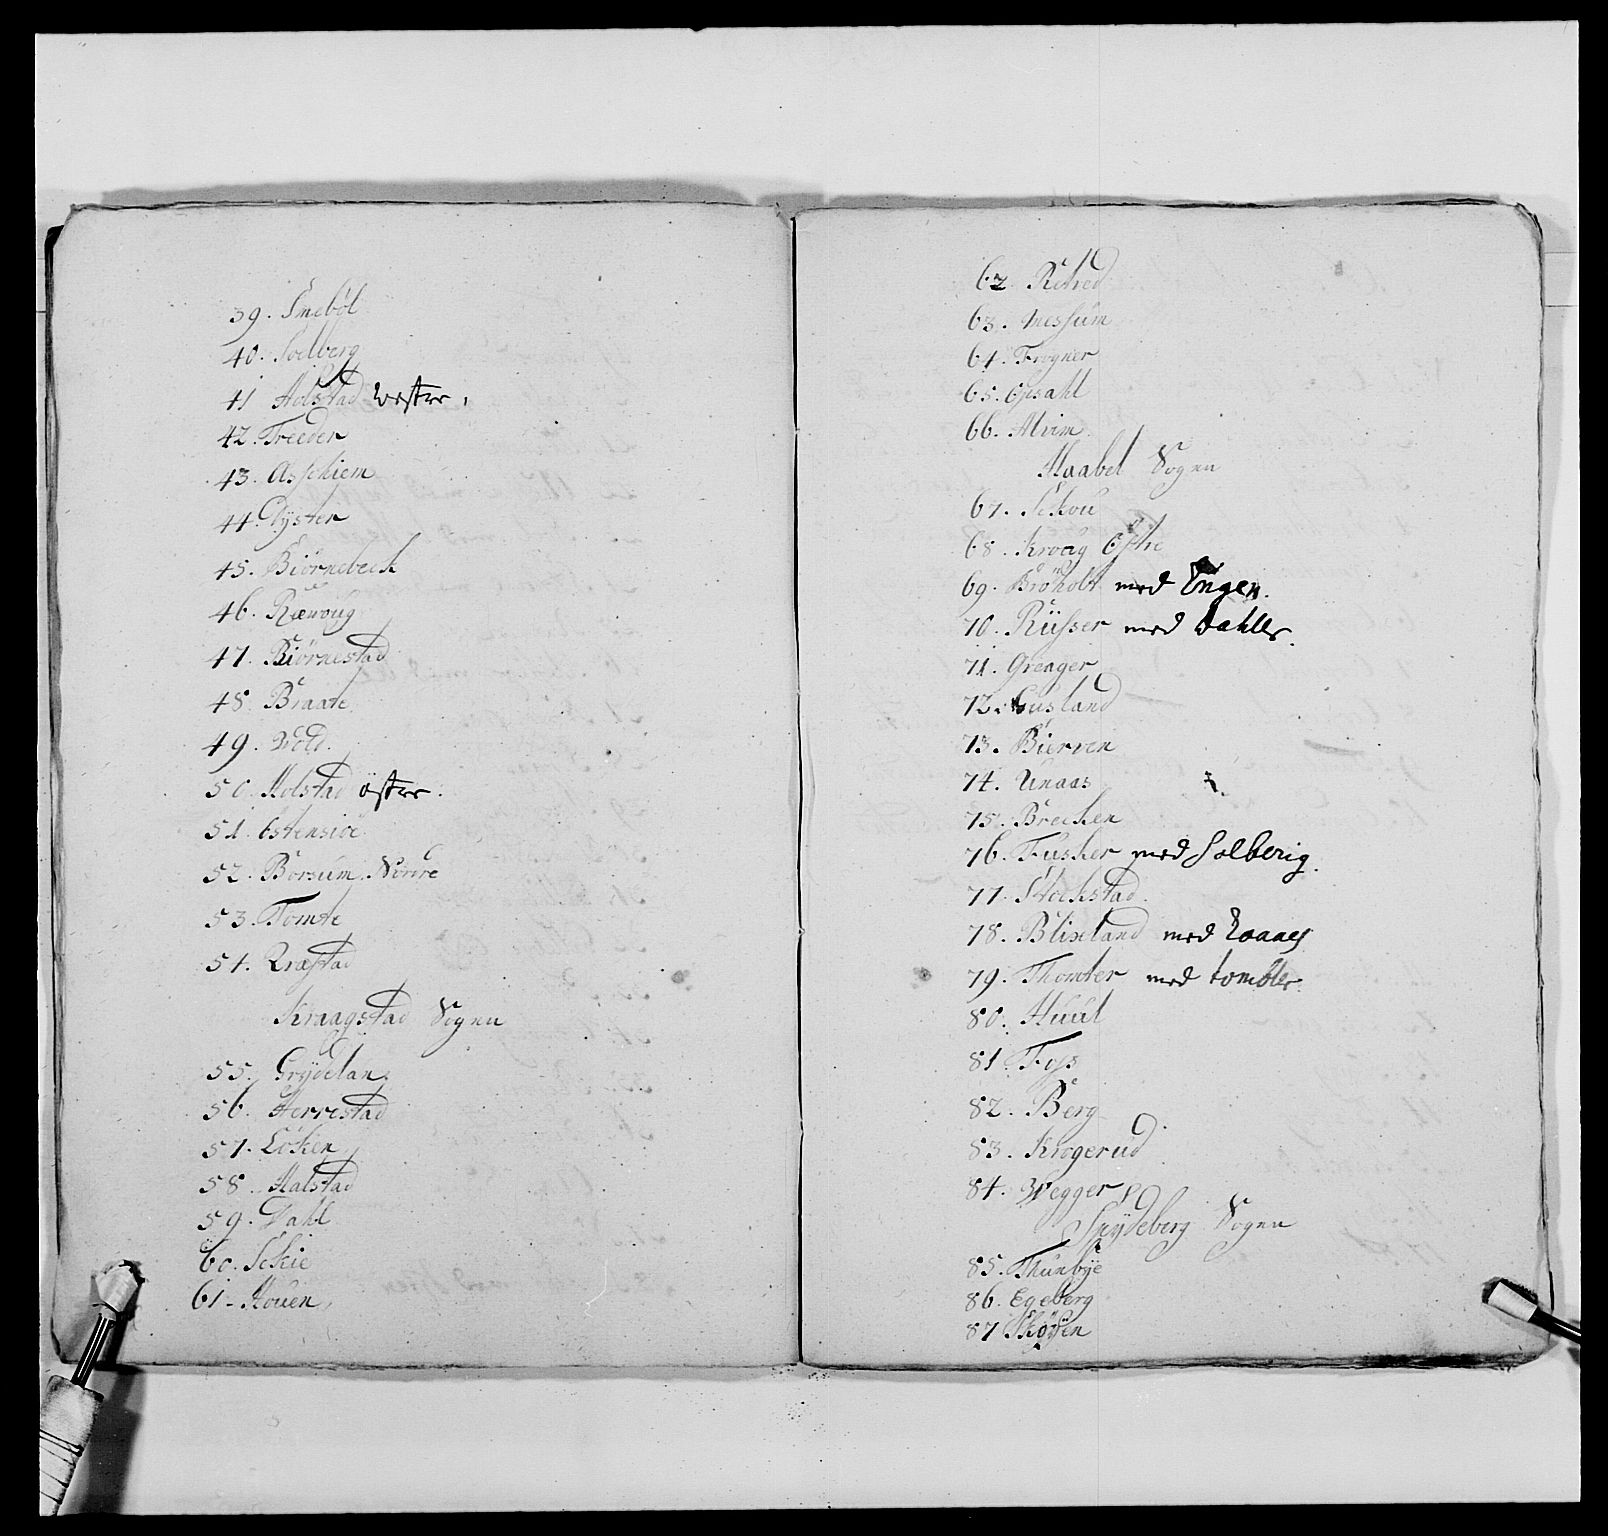 39. Smebøl
40. Soelberg
41 Holstad vester,
42. Treeder
43. Asschiem
44. Tÿster
45. Biørnebeck
46. Rænoug
47. Biørnestad
48. Braate
49. Vold.
50. Holstad öster.
51. Østensiøe
52. Borsum Nordre
53. Tomte
54. Qvæstad
Kraagstad Sogen
55. Grÿdelan
56. Herrestad
57. Løken
58. Halstad
59. Dahl
60. Schie
61. Houen
62. Retved
63. Messum
64. Frogner
65. Opsahl
66. Alvim
Haabøl Sogen
67. Schou
68. Kroeg Østre
69. Brøholt med Engen.
70. Rüsser med Dahler.
71. Greager
72. Husland
73. Bierven
74. Unaas
75. Brechen
76. Fusker med Solberig.
77. Stochstad
78. Blixland med
79. Thomter med tombler.
80. Huul
81 Foss
82. Berg
83. Krogerud
84. Wegger
Spÿdeberg Sogen
85. Thunbÿe
86. Egeberg
87 Skøÿen